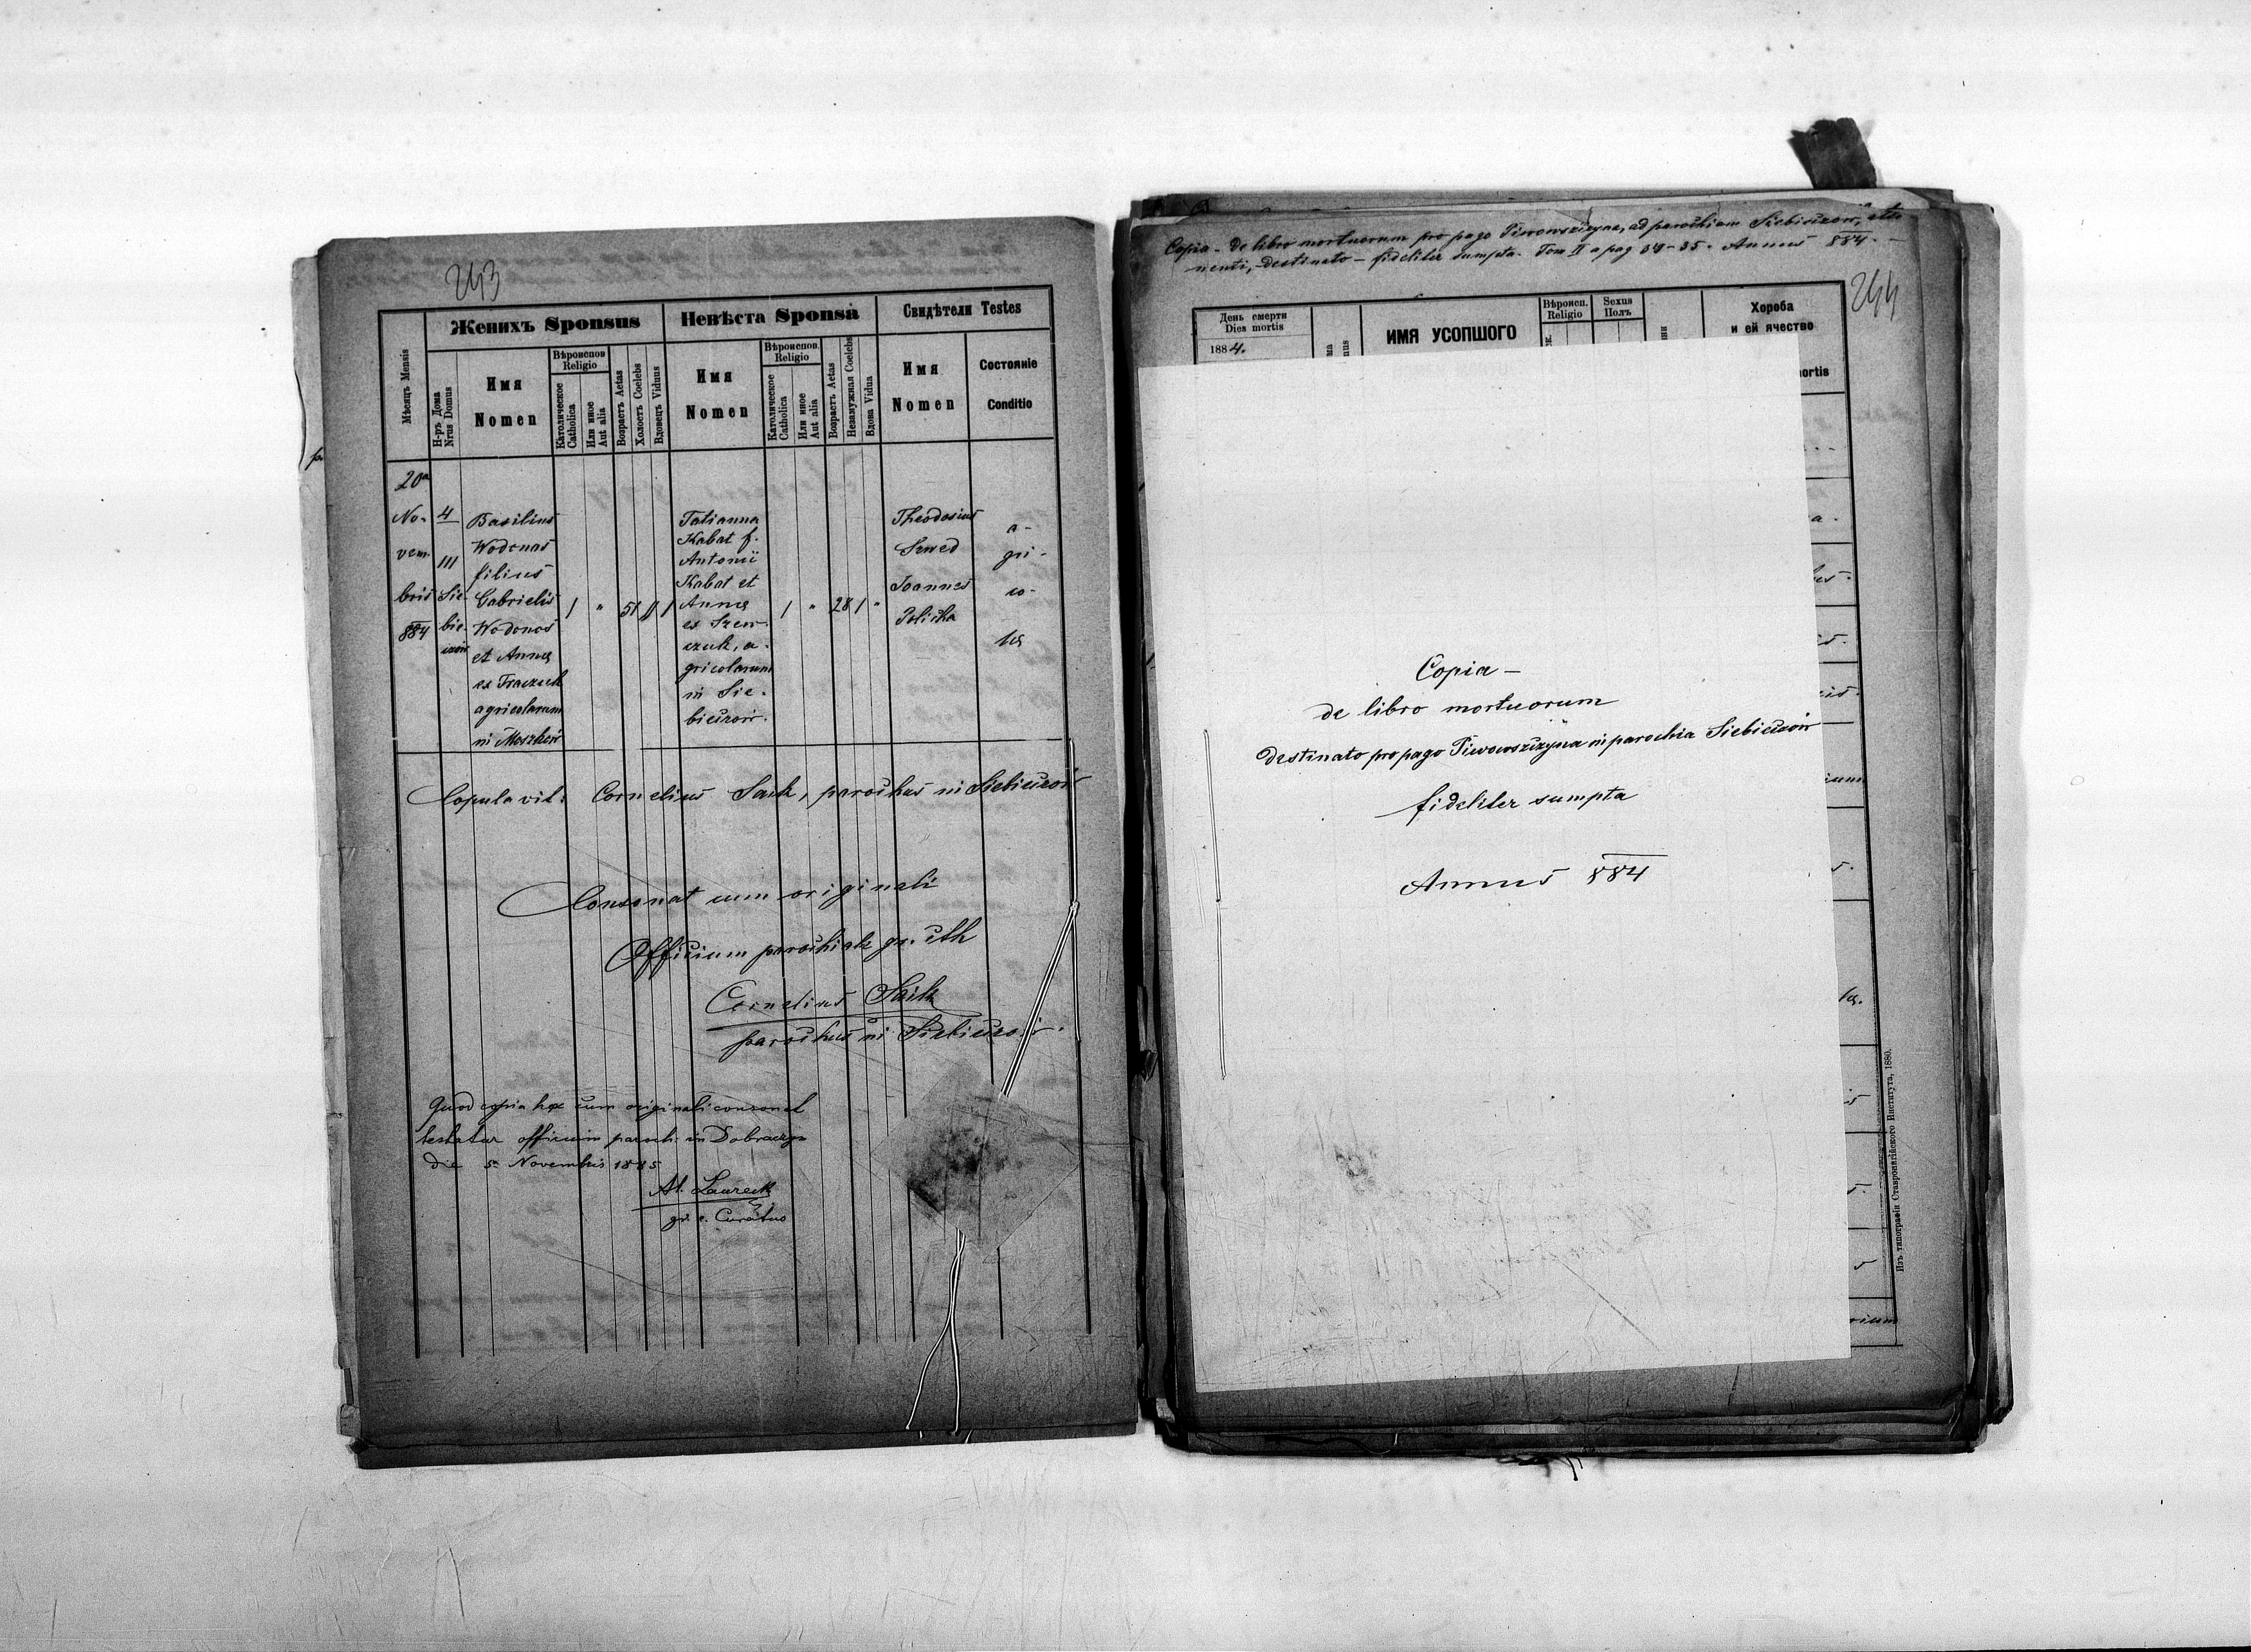 243
Женихъ Sponsus
Невѣста Sponsa
Свидѣтели Testes
Мѣсяць Mensis
Н-ръ Дома
Nrus Domus
Имя
Nomen
Вѣроиспов.
Religio
Католическое
Catholica
Или иное
Aut alia
Возрастъ Aetas
Холостъ Coelebs
Вдовець Viduus
Имя
Nomen
Вѣроиспов.
Religio
Католическое
Catholica
Или иное
Aut alia
Возрастъ Aetas
Незамужная Coelebs
Вдова Vidua
Имя
Nomen
Состояніе
Conditio
20a
No-
vem-
bris
884
4
111
Sie-
bie-
czów
Basilius
Wodonos
filius
Gabrielis
Wodonos
et Annae
ex Fraczek
agricolarum
in Moszków
1 " 51 1
Tatianna
Kabat f.
Antonii
Kabat et
Annae
ex Szew-
czuk, a-
gricolarum
in Sie-
bieczów.
1 " 28 1 "
Theodosius
Szwed
Joannes
a-
gri-
co-
lae
Copulavit: Cornelius Saik, parochus in Siebieczów
Consonat cum originali
Officium parochiale gr. cth
Cornelius Saik
parochus in Siebieczów.
Quod copia haec cum originali consonat
testatur officium paroch: in Dobraczyn
die 5 Novembris 1885
Al. Laurecki
gr. c. Curatus
Copia - de libro mortuorum pro pago Piwowszczyzna, ad parochiam Siebieczów, atti-
nenti, destinato - fideliter sumpta. Tom II a pag 34-35. Annus 884. -
244
День смерти
Dies mortis
1884.
ИМЯ УСОПШОГО
Вѣроисп.
Religio
Sexus
Полъ
Хороба
и ей ячество
mortis
Copia -
de libro mortuorum
destinato pro pago Piwowszczyzna in parochia Siebieczów
fideliter sumpta
Annus 884
Изъ типографіи Ставропигійского Института, 1880.